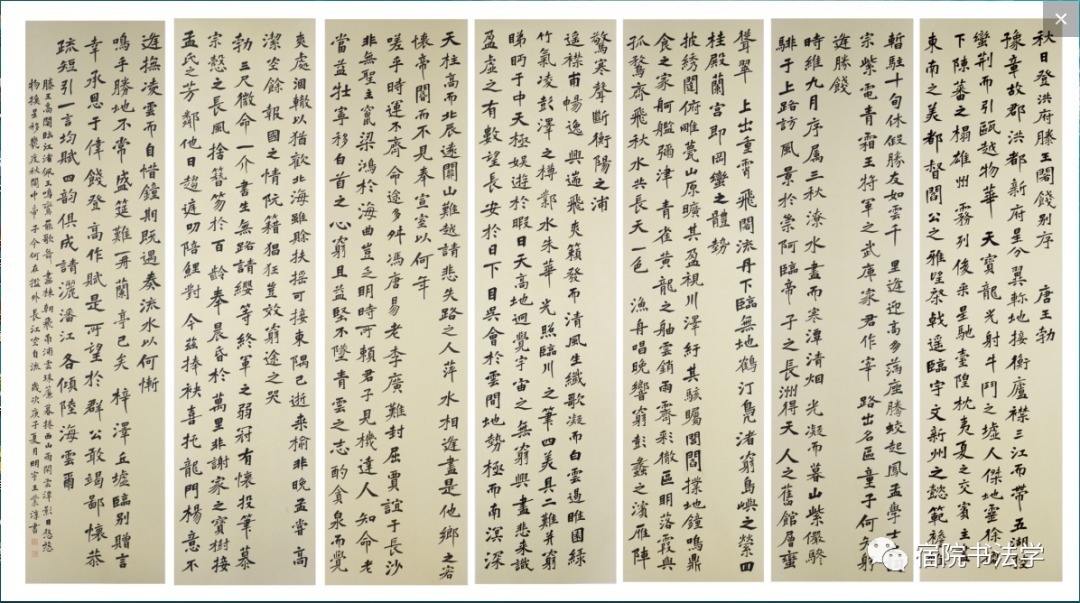 秋日登洪府滕王閣餞别序 唐王勃
豫章故郡洪都新府星分翼軫地接衡廬襟三江而帶五湖控
蠻荆而引甌越物華 天寳龍光射牛鬥之墟人傑地靈徐孺
下陳蕃之榻雄州 霧列俊采星馳臺隍枕夷夏之交賓主
東南之美都督閻公之雅望棨戟遥臨宇文新州之懿範襜帷
暫駐十旬休假勝友如雲千 里逢迎高朋滿座騰蛟起鳳孟學士
宗紫電青霜王将軍之武庫家君作宰 路出名區童子何知躬
逢勝餞
時維九月序属三秋潦水盡而寒潭清烟光凝而暮山紫儼驂
騑于上路訪風景於崇阿臨帝子之長洲得天人之舊館層巒
聳翠 上出重霄飛閣流丹下臨無地鶴汀鳧渚窮島嶼之縈回
桂殿蘭宫即岡巒之體勢
披綉闥俯雕甍山原曠其盈視川澤紆其駭矚閭閻撲地鐘鳴鼎
食之家舸艦彌津青雀黄龍之舳雲銷雨霽彩徹區明落霞與
孤鶩齊飛秋水共長天一色 漁舟唱晚響窮彭蠡之濱雁陣
驚寒聲斷衡陽之浦
遥襟甫暢逸興遄飛爽籟發而清風生纖歌凝而白雲遏睢園緑
竹氣凌彭澤之樽鄴水朱華 光照臨川之筆四美具二難并窮
睇眄于中天極娱遊於暇日天高地迥覺宇宙之無窮興盡悲来識
盈虚之有數望長安於日下目吳會於雲間地勢極而南溟深
天柱高而北辰遠關山難越誰悲失路之人萍水相逢盡是他鄉之客
懷帝閽而不見奉宣室以何年
嗟乎時運不齊命途多舛馮唐易老李廣難封屈賈誼于長沙
非無聖主竄梁鴻於海曲豈乏明時所賴君子見機達人知命老
當益壮寧移白首之心窮且益堅不墜青雲之志酌貪泉而覺
爽處涸轍以猶歡北海雖賒扶摇可接東隅已逝桑榆非晚孟嘗高
潔空餘報國之情阮籍猖狂豈效窮途之哭
勃三尺微命一介書生無路請纓等終軍之弱冠有懷投筆慕
宗慤之長風捨簪笏於百齡奉晨昏於萬里非謝家之寶樹接
孟氏之芳鄰他日趨庭叨陪鯉對今兹捧袂喜托龍門楊意不
逢撫凌雲而自惜鐘期既遇奏流水以何慚
嗚乎勝地不常盛筵難再蘭亭已矣 梓澤丘墟臨别贈言
幸承恩于偉餞登高作賦是所望於群公敢竭鄙懷恭
疏短引一言均賦四韵俱成請灑潘江各傾陸海雲爾
滕王高閣臨江渚佩玉鳴鸞罷歌舞畫棟朝飛南浦雲珠簾暮捲西山雨閑雲潭影日悠悠
物换星移幾度秋閣中帝子今何在檻外長江空自流 歲次庚子夏月明宇王業淳書
宿院书法学